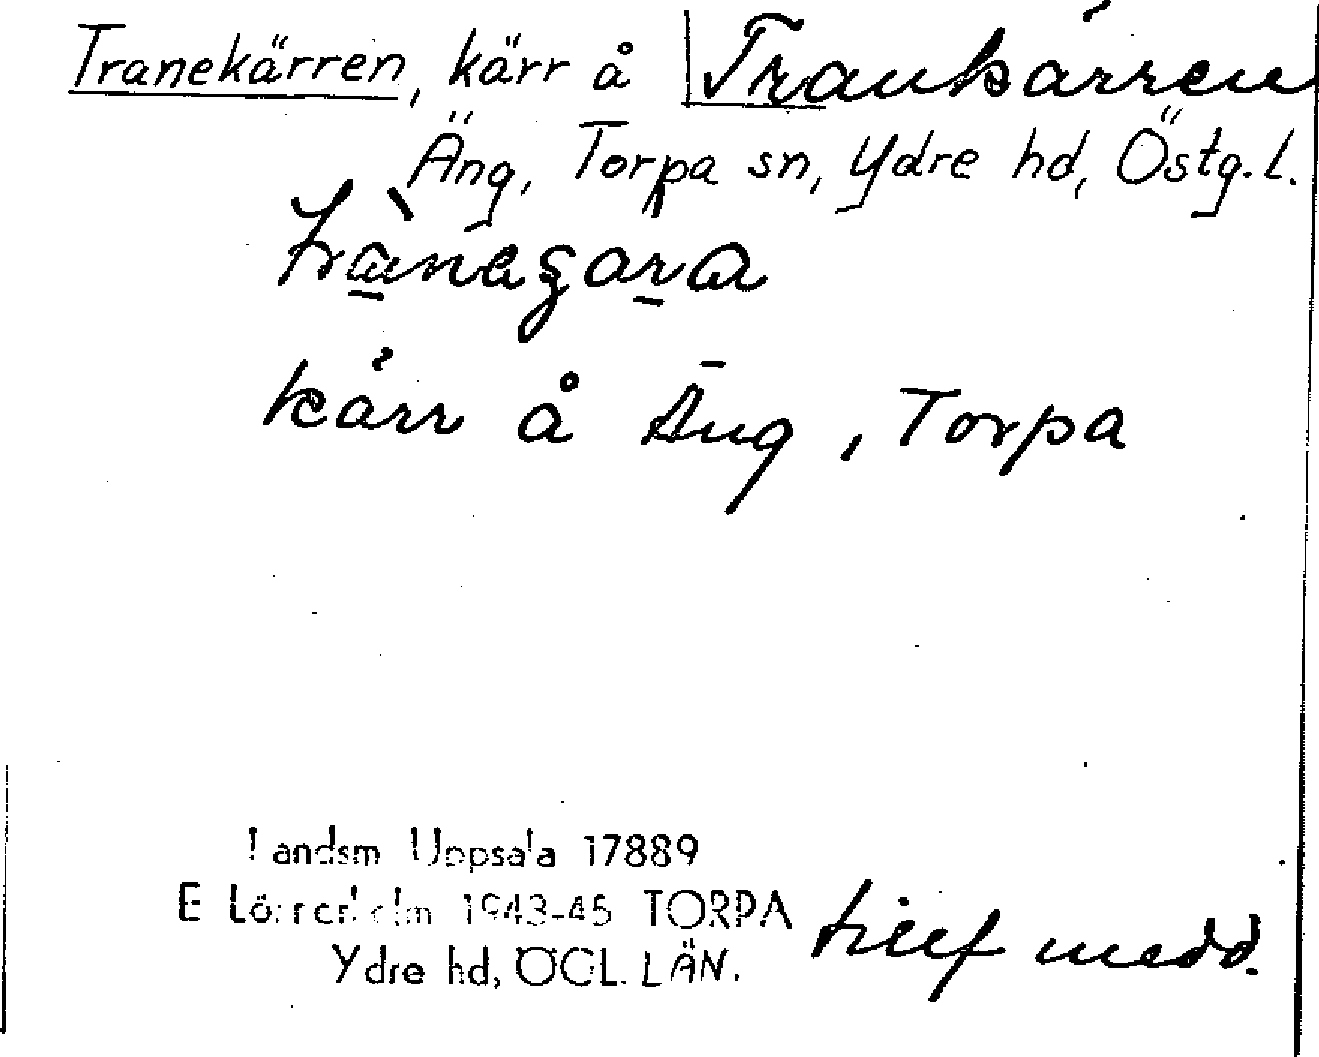 Tranekärren, kärr å Trankärren
Äng, Torpa sn, Ydre hd, Östg.l.
kärr å Äng, Torpa
Landsm Uppsala 17889
E Lönnerholm 1943-45 TORPA
Ydre hd, ÖGL. LÄN.
medd.